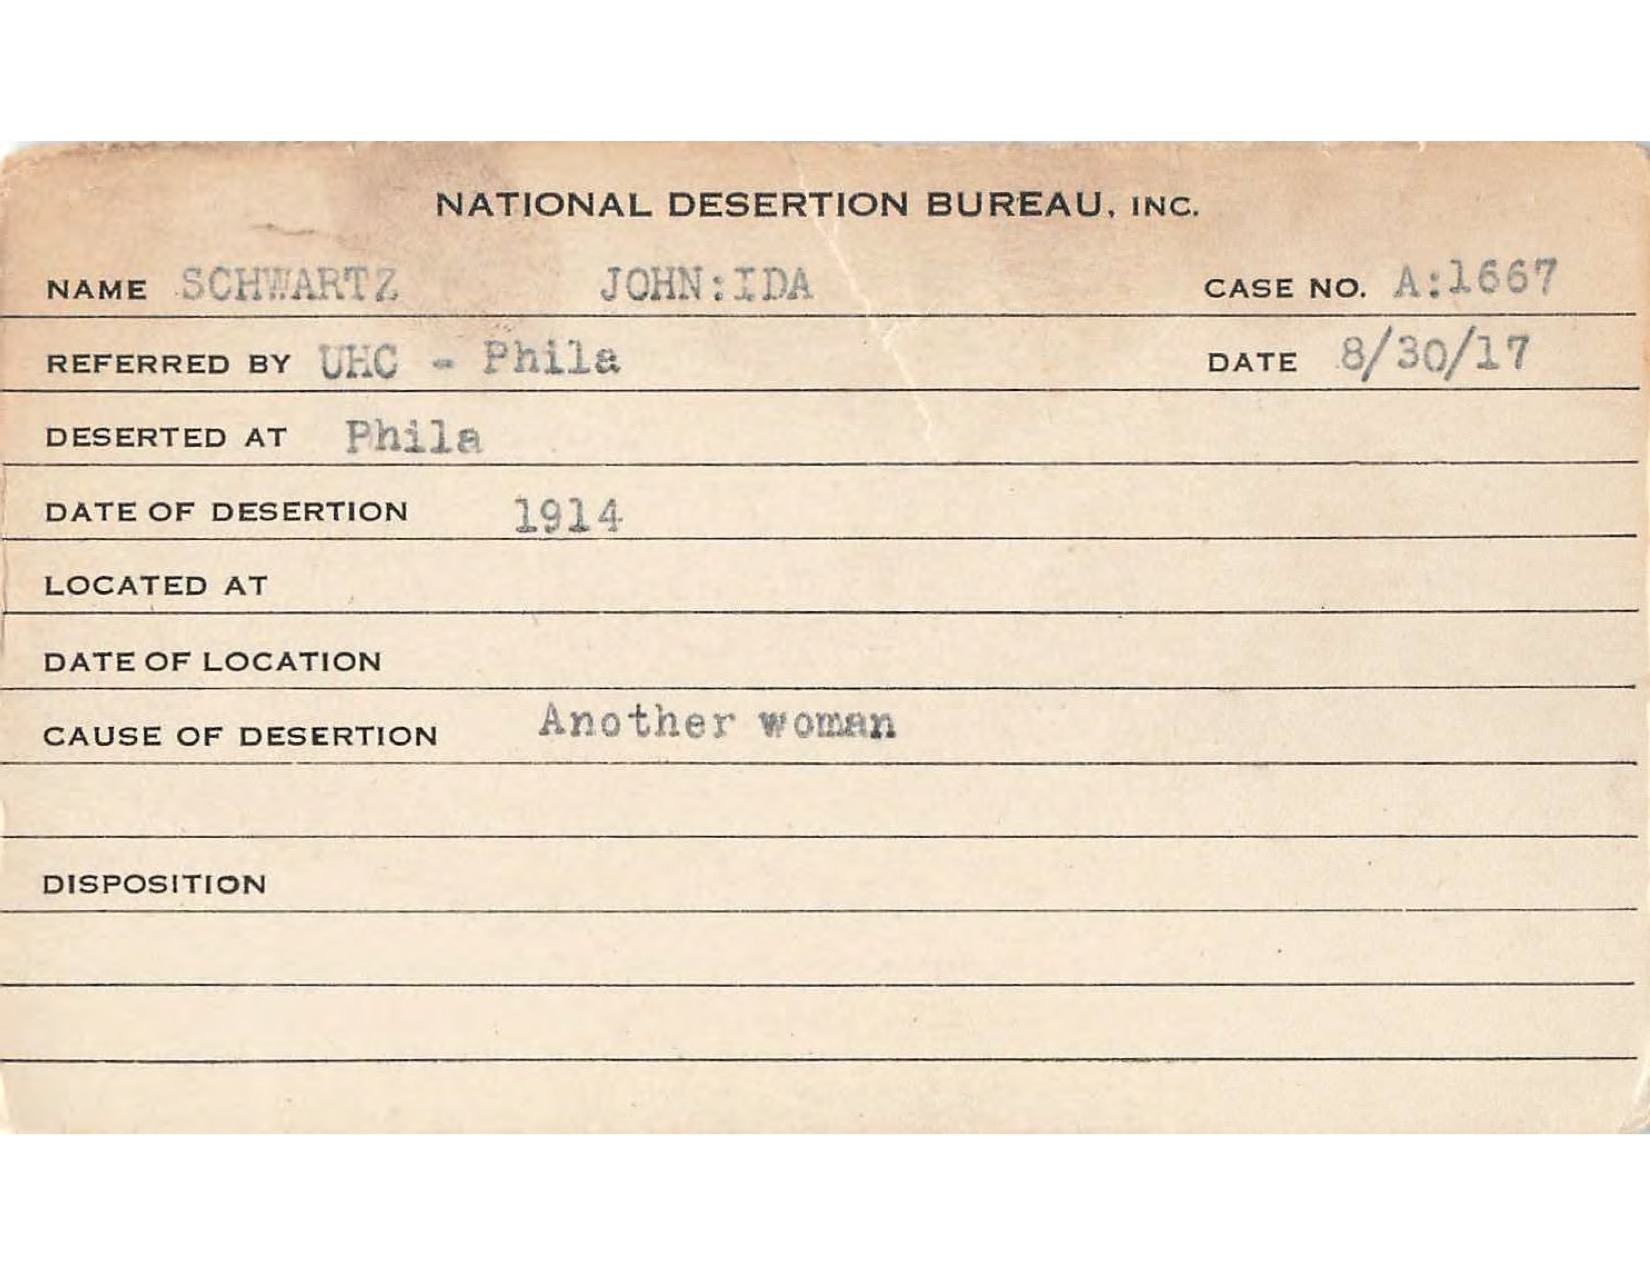 NATIONAL DESERTION BUREAU, INC.
NAME SCHWARTZ JOHN:IDA CASE NO. A:1667
REFERRED BY UHC - Phila DATE 8/30/17
DESERTED AT Phila
DATE OF DESERTION 1914
LOCATED AT
DATE OF LOCATION
CAUSE OF DESERTION Another woman
DISPOSITION